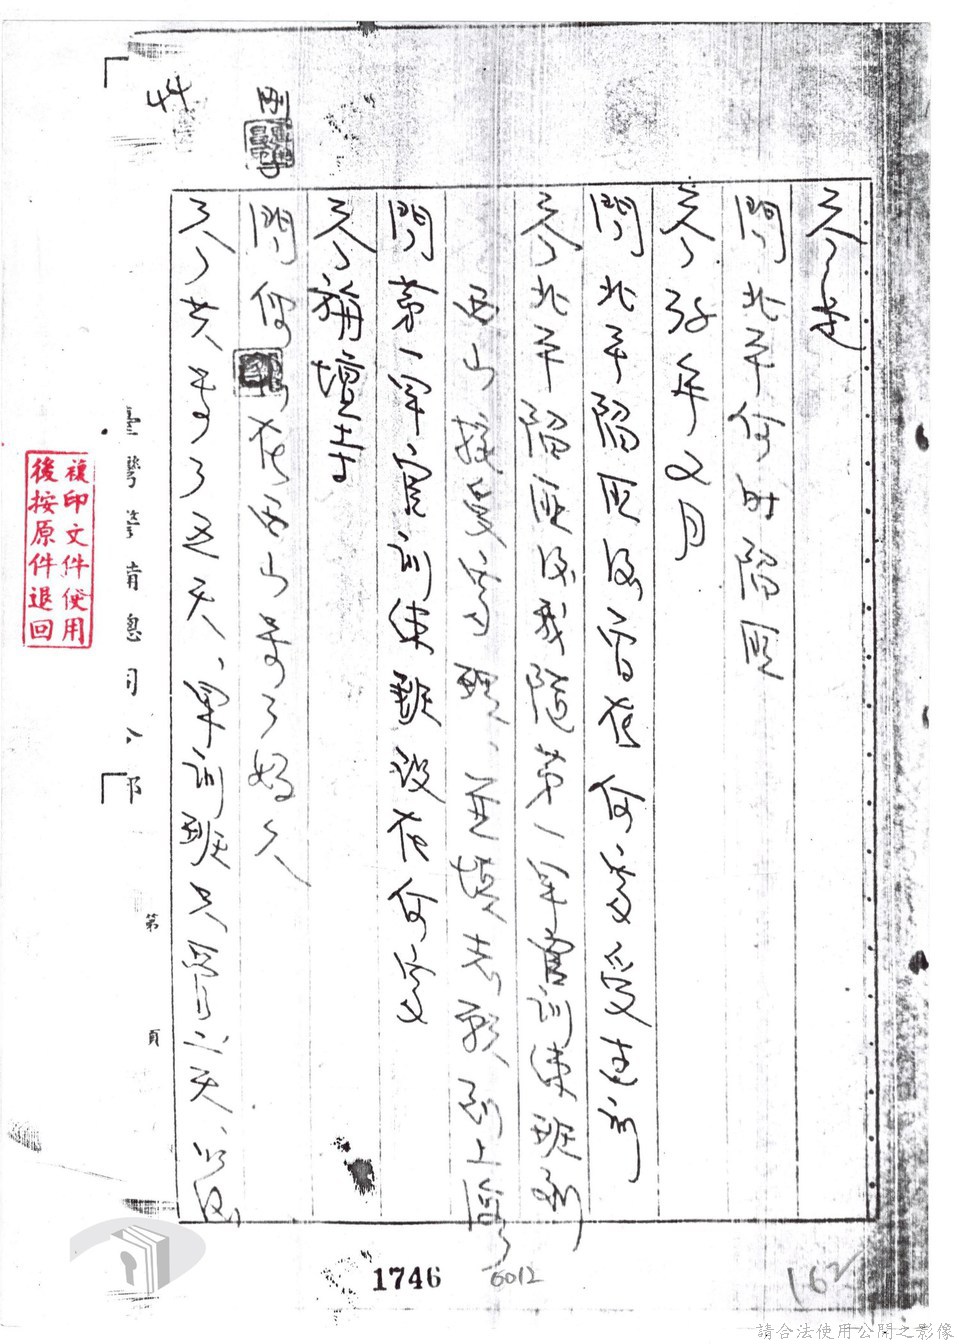 答：是
問：北平何時陷匪
答：38年2月
問：北平陷匪後曾在何處受走訓
答：北平陷匪後我隨第一軍官訓練班到
西山接受審理、並填志願到上海
問：第一軍官訓練班設在何處
答：旃壇寺
問：你在西山等了好久
答：共等了五天、軍訓班只留六天、以後
臺灣警備總司令部
第 頁
複印文件使用
後按原件退回
1746
6012
162
請合法使用公開之影像